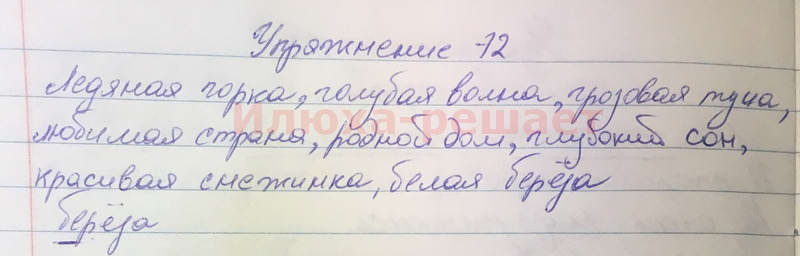 Упражнение 12
Ледяная горка, голубая волна, грозовая туча,
Илюха-решает
любимая страна, родной дом, глубокий сон,
красивая снежинка, белая берёза
берёза